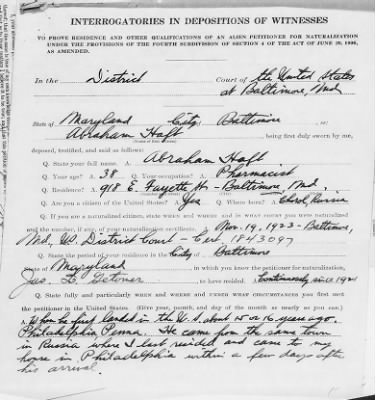 INTERROGATORIES IN DEPOSITIONS OF WITNESSES
TO PROVE RESIDENCE AND OTHER QUALIFICATIONS OF AN ALIEN PETITIONER FOR NATURALIZATION
UNDER THE PROVISIONS OF THE FOURTH SUBDIVISION OF SECTION 4 OF THE ACT OF JUNE 29, 1906,
AS AMENDED.
In the District Court of the United States
at Baltimore, Md
State of Maryland City Baltimore
Abraham Haft being first duly sworn by me,
deposed, testified, and said as follows:
Q. State your full name. A. Abraham Haft
Q. Your age? A. 38 Q. Your occupation? A. Pharmacist
Q. Residence? A. 918 E. Fayette St - Baltimore, Md.
Q. Are you a citizen of the United States? A. Yes Q. Where born? A. Russia
Q. If you are a naturalized citizen, state when and in what court you were naturalized
and the number, if any, of your naturalization certificate. Nov. 19, 1923 - Baltimore,
Md, US District Court - Cert 1843097
Q. State the period of your residence in the City of Baltimore
State of Maryland, in which you know the petitioner for naturalization,
Jas. to have resided. Continuously since 1921
Q. State fully and particularly when and where and under what circumstances you first
met the petitioner in the United States. (Give year, month, and day of the month as nearly as you can.)
A. When he first landed in the U. S. about 15 or 16 years ago.
Philadelphia, Penna. He came from the same town
in Russia where I last resided and came to my
house in Philadelphia within a few days after
his arrival.